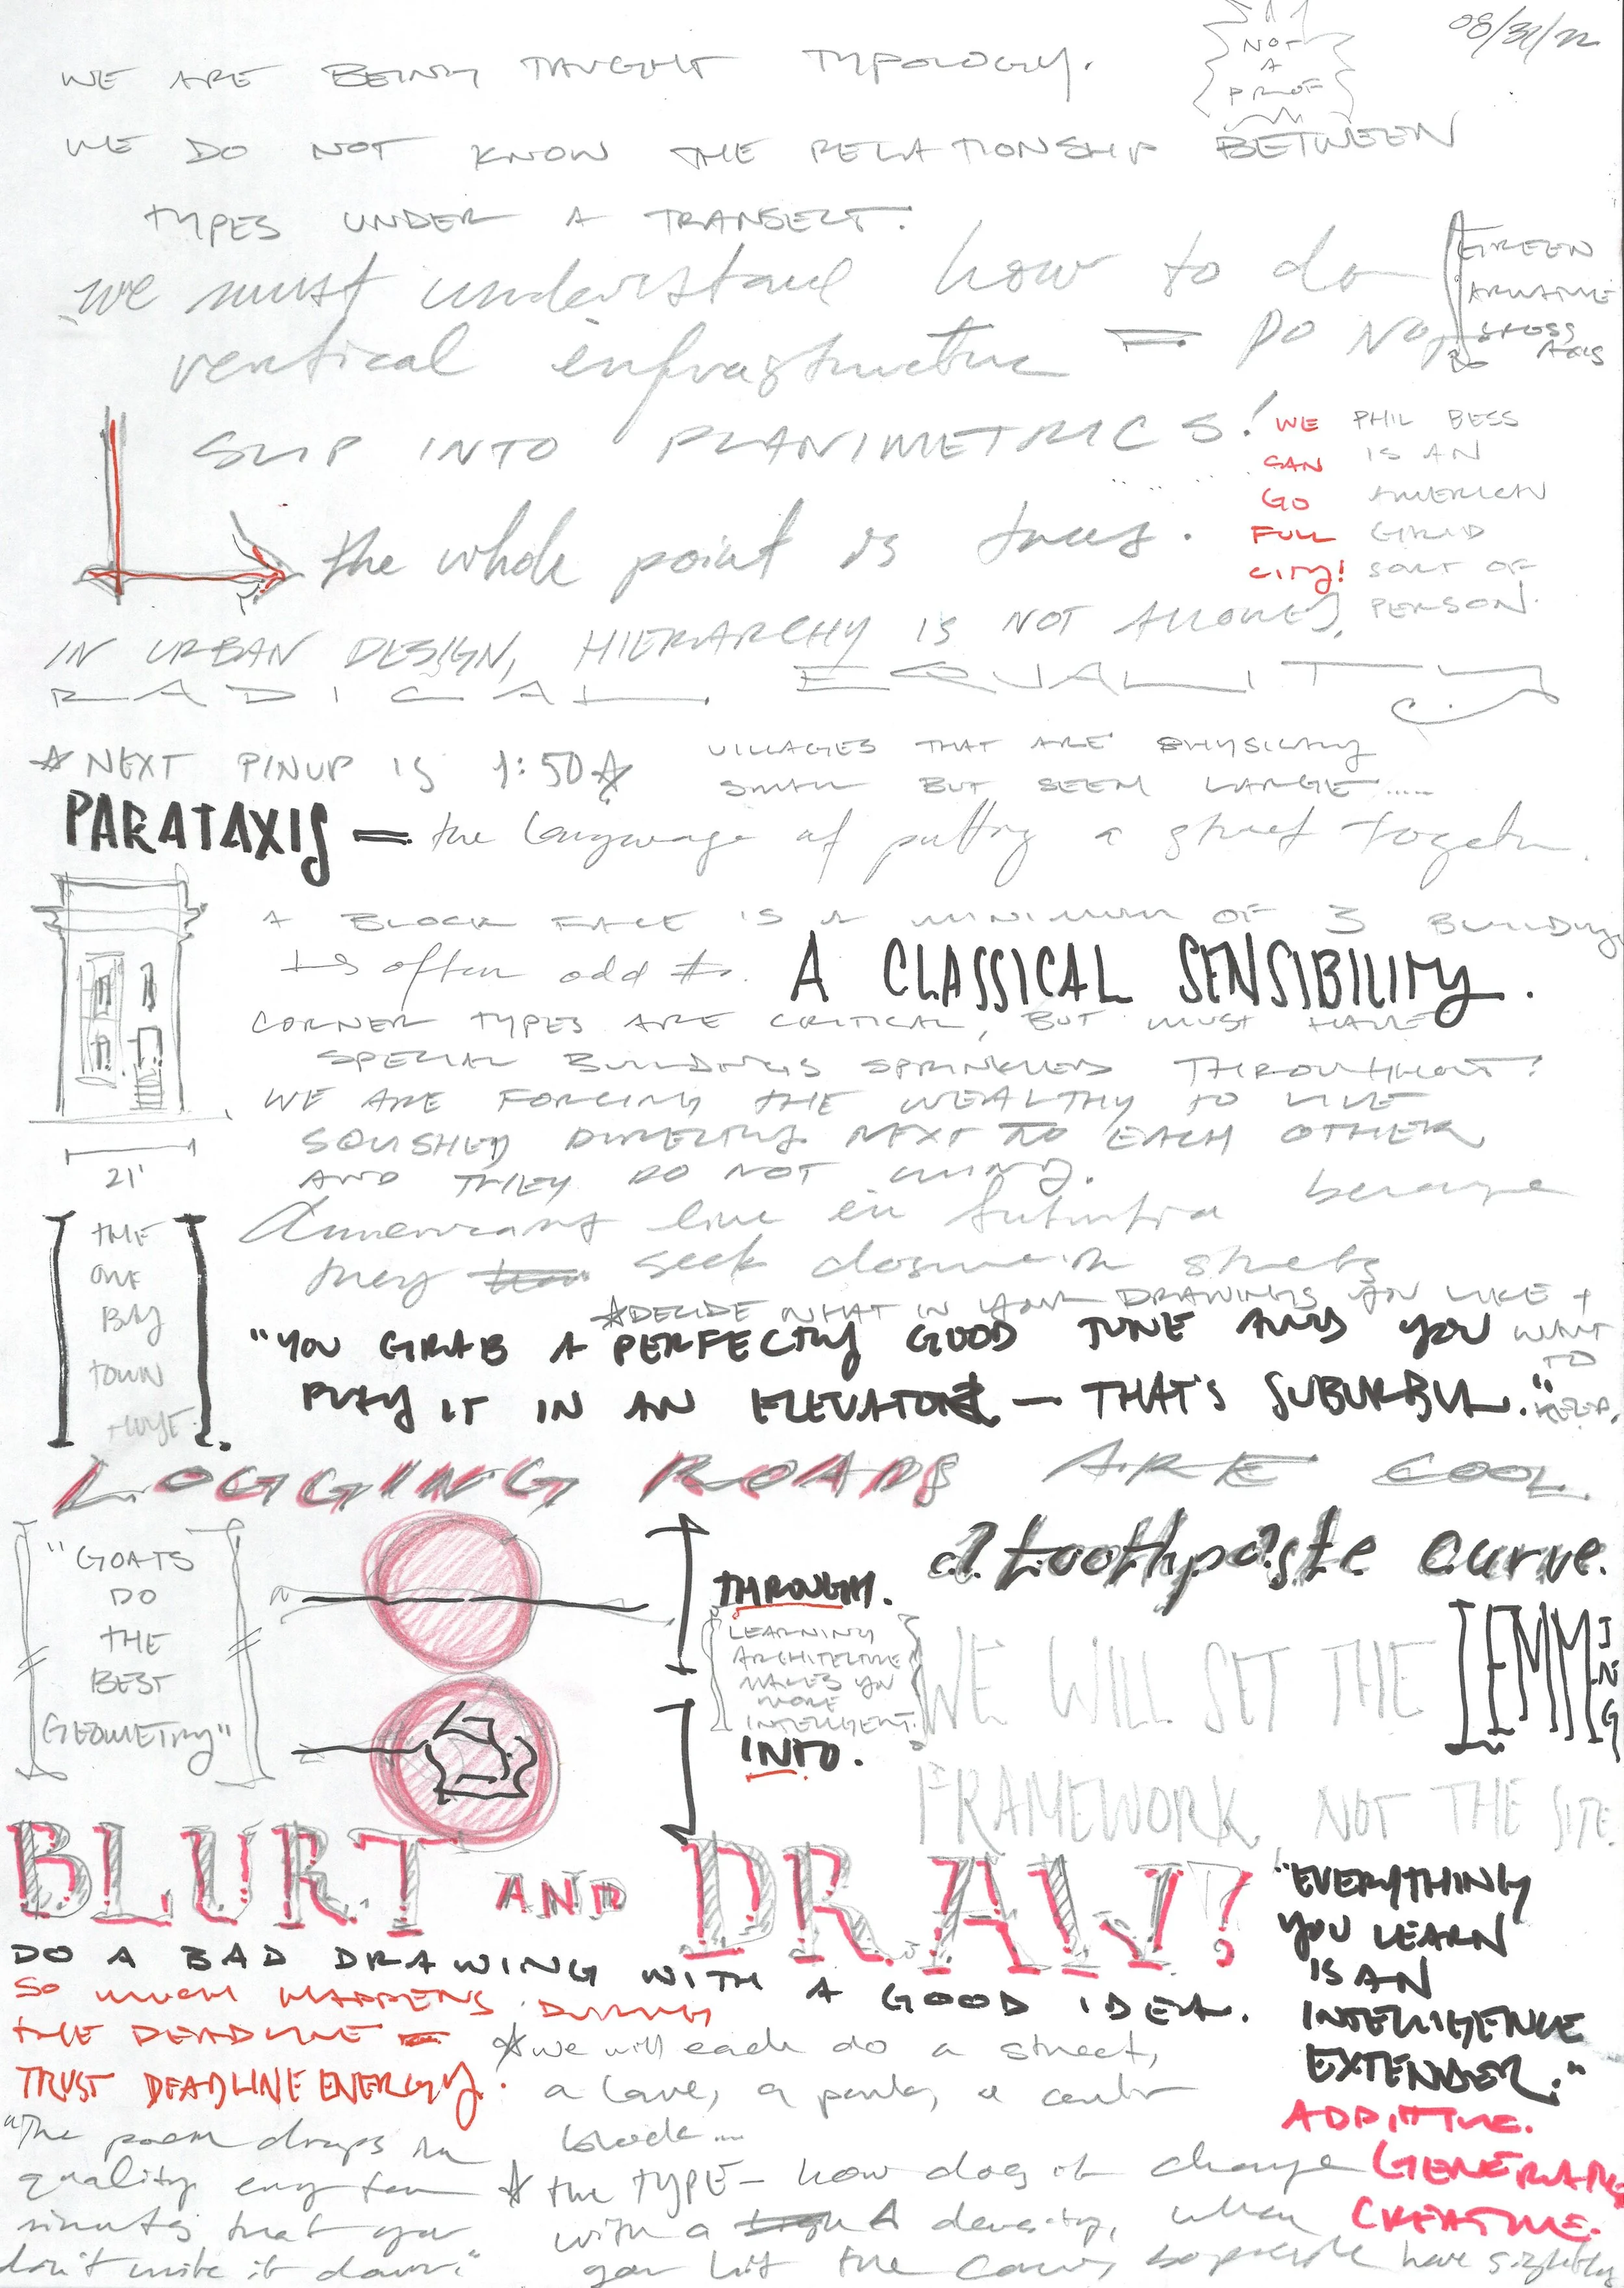 08/31/22
NOT
A
PROF
WE ARE BEING TAUGHT TYPOLOGY.
WE DO NOT KNOW THE RELATIONSHIP BETWEEN
TYPES UNDER A TRANSECT.
we must understand how to do
vertical infrastructure = DO NOT
SLIP INTO PLANIMETRICS!
GREEN
CROSS
AXIS
WE
CAN
GO
FULL
CITY!
PHIL BESS
IS AN
AMERICAN
GRID
SORT OF
PERSON.
the whole point is trees.
IN URBAN DESIGN, HIERARCHY IS NOT ALLOWED,
RADICAL EQUALITY
☆ NEXT PINUP IS 1:50 ☆
VILLAGES THAT ARE PHYSICALLY
SMALL BUT SEEM LARGE .....
PARATAXIS = the language of putting a street together.
A BLOCK FACE IS A MINIMUM OF 3 BUILDINGS
+ is often odd #s.
A CLASSICAL SENSIBILITY.
CORNER TYPES ARE CRITICAL, BUT MUST HAVE
SPECIAL BUILDINGS SPRINKLED THROUGHOUT!
WE ARE FORCING THE WEALTHY TO LIVE
SQUISHED DIRECTLY NEXT TO EACH OTHER
AND THEY DO NOT MIND.
21'
Americans live in suburbia because
they seek closure in streets
THE
ONE
BAY
TOWN
HOUSE.
☆ DECIDE WHAT IN YOUR DRAWINGS YOU LIKE +
WANT
TO
KEEP.
"YOU GRAB A PERFECTLY GOOD TUNE AND YOU
PLAY IT IN AN ELEVATOR — THAT'S SUBURBIA."
LOGGING ROADS ARE COOL
"GOATS
DO
THE
BEST
GEOMETRY"
THROUGH.
LEARNING
ARCHITECTURE
MAKES YOU
MORE
INTELLIGENT.
INTO.
a toothpaste curve.
WE WILL SET THE LEMMING
FRAMEWORK, NOT THE SITE.
BLURT AND DRAW!
DO A BAD DRAWING WITH A GOOD IDEA.
SO MUCH HAPPENS DURING
THE DEADLINE =
TRUST DEADLINE ENERGY.
"The poem drops in
quality every ten
minutes that you
don't write it down."
☆ we will each do a street,
a lane, a park, a center
block ....
☆ the TYPE - how does it change
with a density, when
you hit the corner, have slightly
"EVERYTHING
YOU LEARN
IS AN
INTELLIGENCE
EXTENDER."
ADDITIVE.
GENERATIVE
CREATIVE.